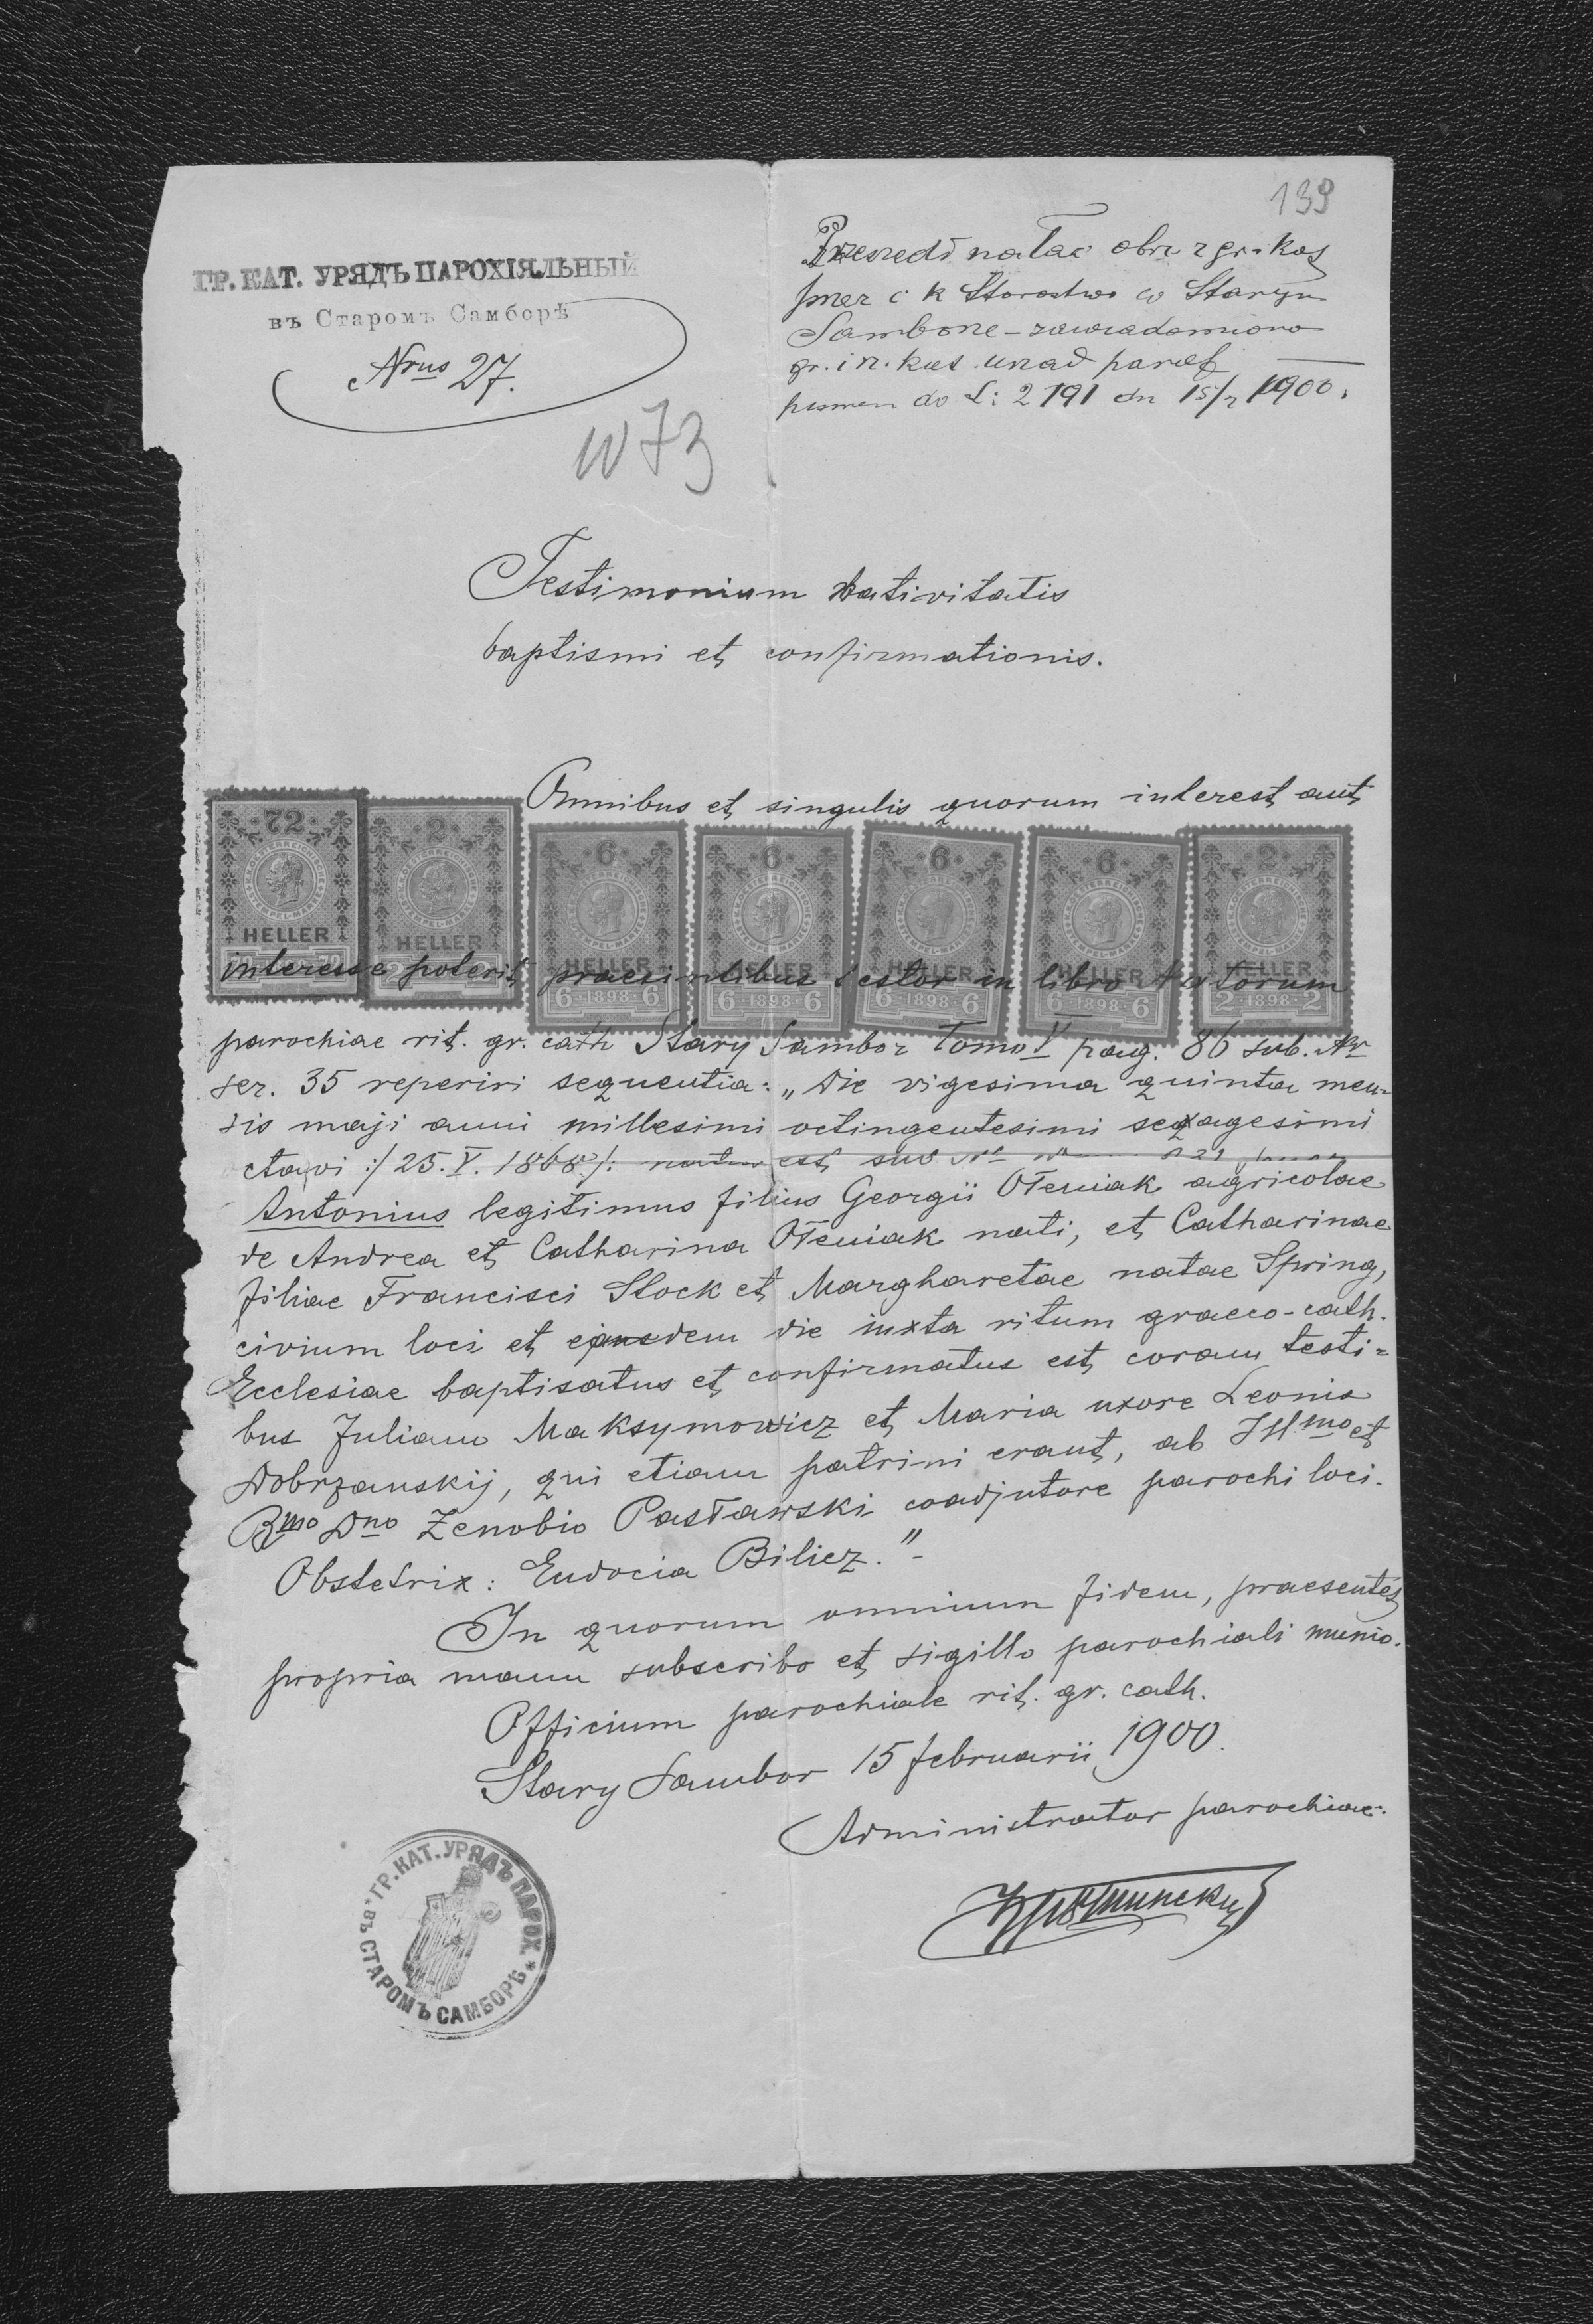 139
ГР. КАТ. УРЯДЪ ПАРОХІЯЛЬНЫЙ
въ Старомъ Самборѣ
Nrus 27.
Przeszedł na łac obrz z gr. kat
przez c k Starostwo w Starym
Samborze – zawiadomiono
gr. i rz. kat. urząd paraf
pismem do L: 2191 dn 15/2 1900.
W 73
Testimonium nativitatis
baptismi et confirmationis.
Omnibus et singulis quorum interest aut
72 HELLER
2 HELLER
6 HELLER 6 · 1898 · 6
6 HELLER 6 · 1898 · 6
6 HELLER 6 · 1898 · 6
6 HELLER 6 · 1898 · 6
2 HELLER 2 · 1898 · 2
interesse poterit praesentibus testor in libro natorum
parochiae rit. gr. cath Stary Sambor Tomo V pag. 86 sub. Nr
ser. 35 reperiri sequentia: „Die vigesima quinta men-
sis maji anni millesimi octingentesimi sexagesimi
octavi :/ 25. V. 1868 /: natus est sub Nr
Antonius legitimus filius Georgii Ołeniak agricolae
de Andrea et Catharina Ołeniak nati, et Catharinae
filiae Francisci Stock et Margharetae natae Spring,
civium loci et ejusdem die iuxta ritum graeco-cath.
Ecclesiae baptisatus et confirmatus est coram testi=
bus Juliano Maksymowicz et Maria uxore Leonis
Dobrzanskij, qui etiam patrini erant, ab Illmo et
Rmo Dno Zenobio Pasławski coadjutore parochi loci.
Obstetrix: Eudocia Bilicz."-
In quorum omnium fidem, praesentes
propria manu subscribo et sigillo parochiali munio.
Officium parochiale rit. gr. cath.
Stary Sambor 15 februarii 1900.
Administrator parochiae:
ГР. КАТ. УРЯДЪ ПАРОХ. * ВЪ СТАРОМЪ САМБОРѢ *